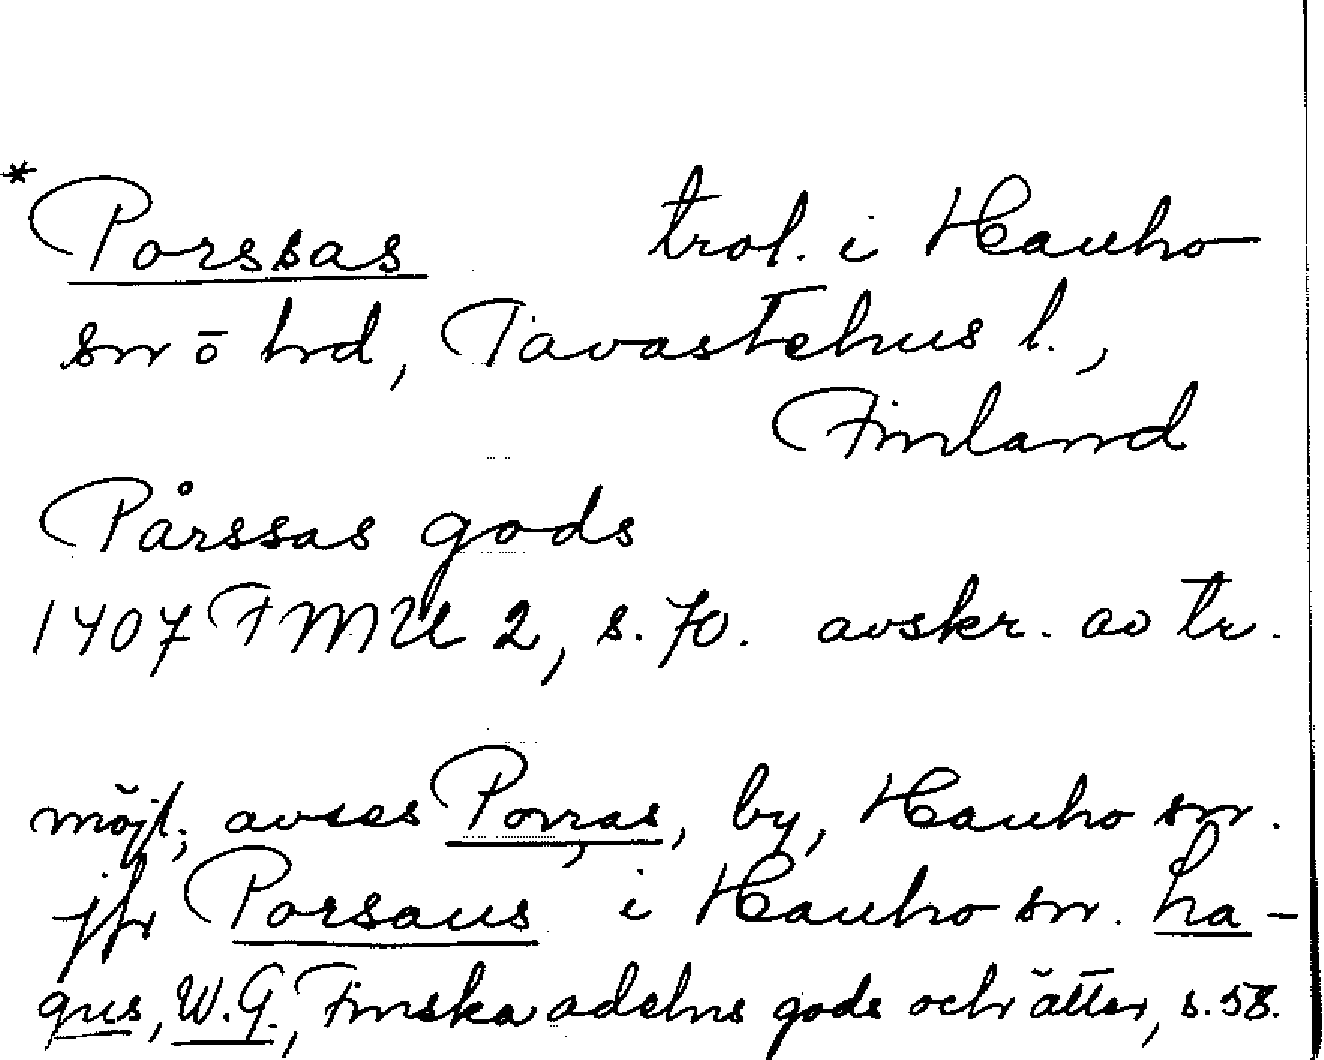 * Porssas trol. i Hauho
sn o hd, Tavastehus l.,
Finland
Pårssas gods
1407 FMU 2, s. 70. avskr. av tr.
möjl. avses Porras, by, Hauho sn.
jfr Porsaus i Hauho sn. La-
gus, W.G., Finska adelns gods och ätter, s. 58.